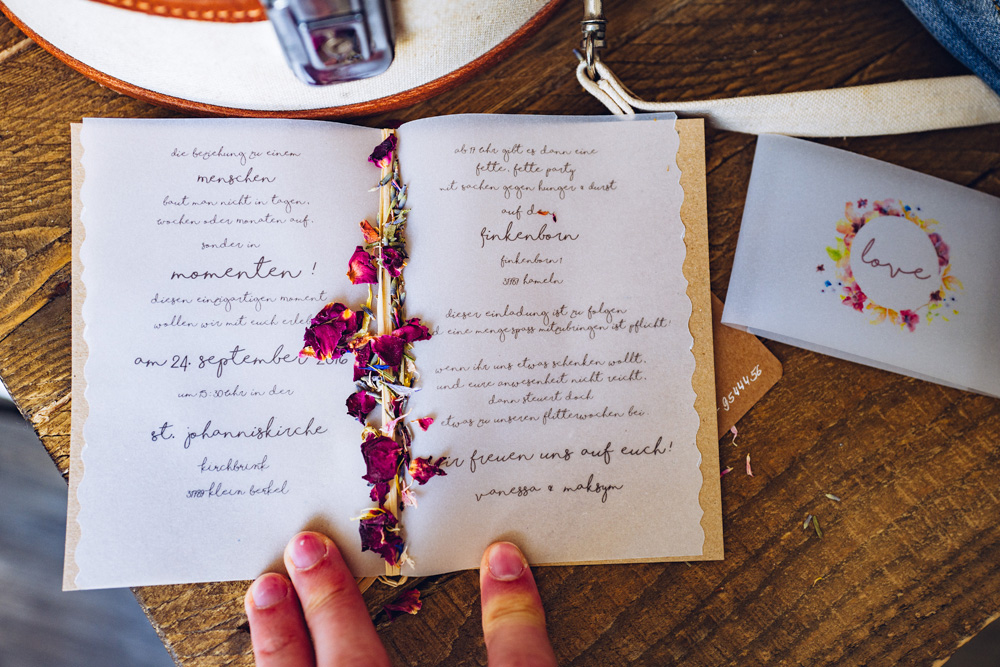 die beziehung zu einem
menschen
baut man nicht in tagen,
wochen oder monaten auf,
sonder in
momenten !
diesen einzigartigen moment
wollen wir mit euch erleb
am 24. september 2016
um 15:30 uhr in der
st. johanniskirche
kirchbrink
31789 klein berkel
ab 17 uhr gibt es dann eine
fette, fette party
mit sachen gegen hunger & durst
auf de
finkenborn
finkenborn 1
31787 hameln
dieser einladung ist zu folgen
d eine menge spass mitzubringen ist pflicht!
wenn ihr uns etwas schenken wollt,
und eure anwesenheit nicht reicht,
dann steuert doch
etwas zu unseren flitterwochen bei
ir freuen uns auf euch!
vanessa & maksym
love
9544456